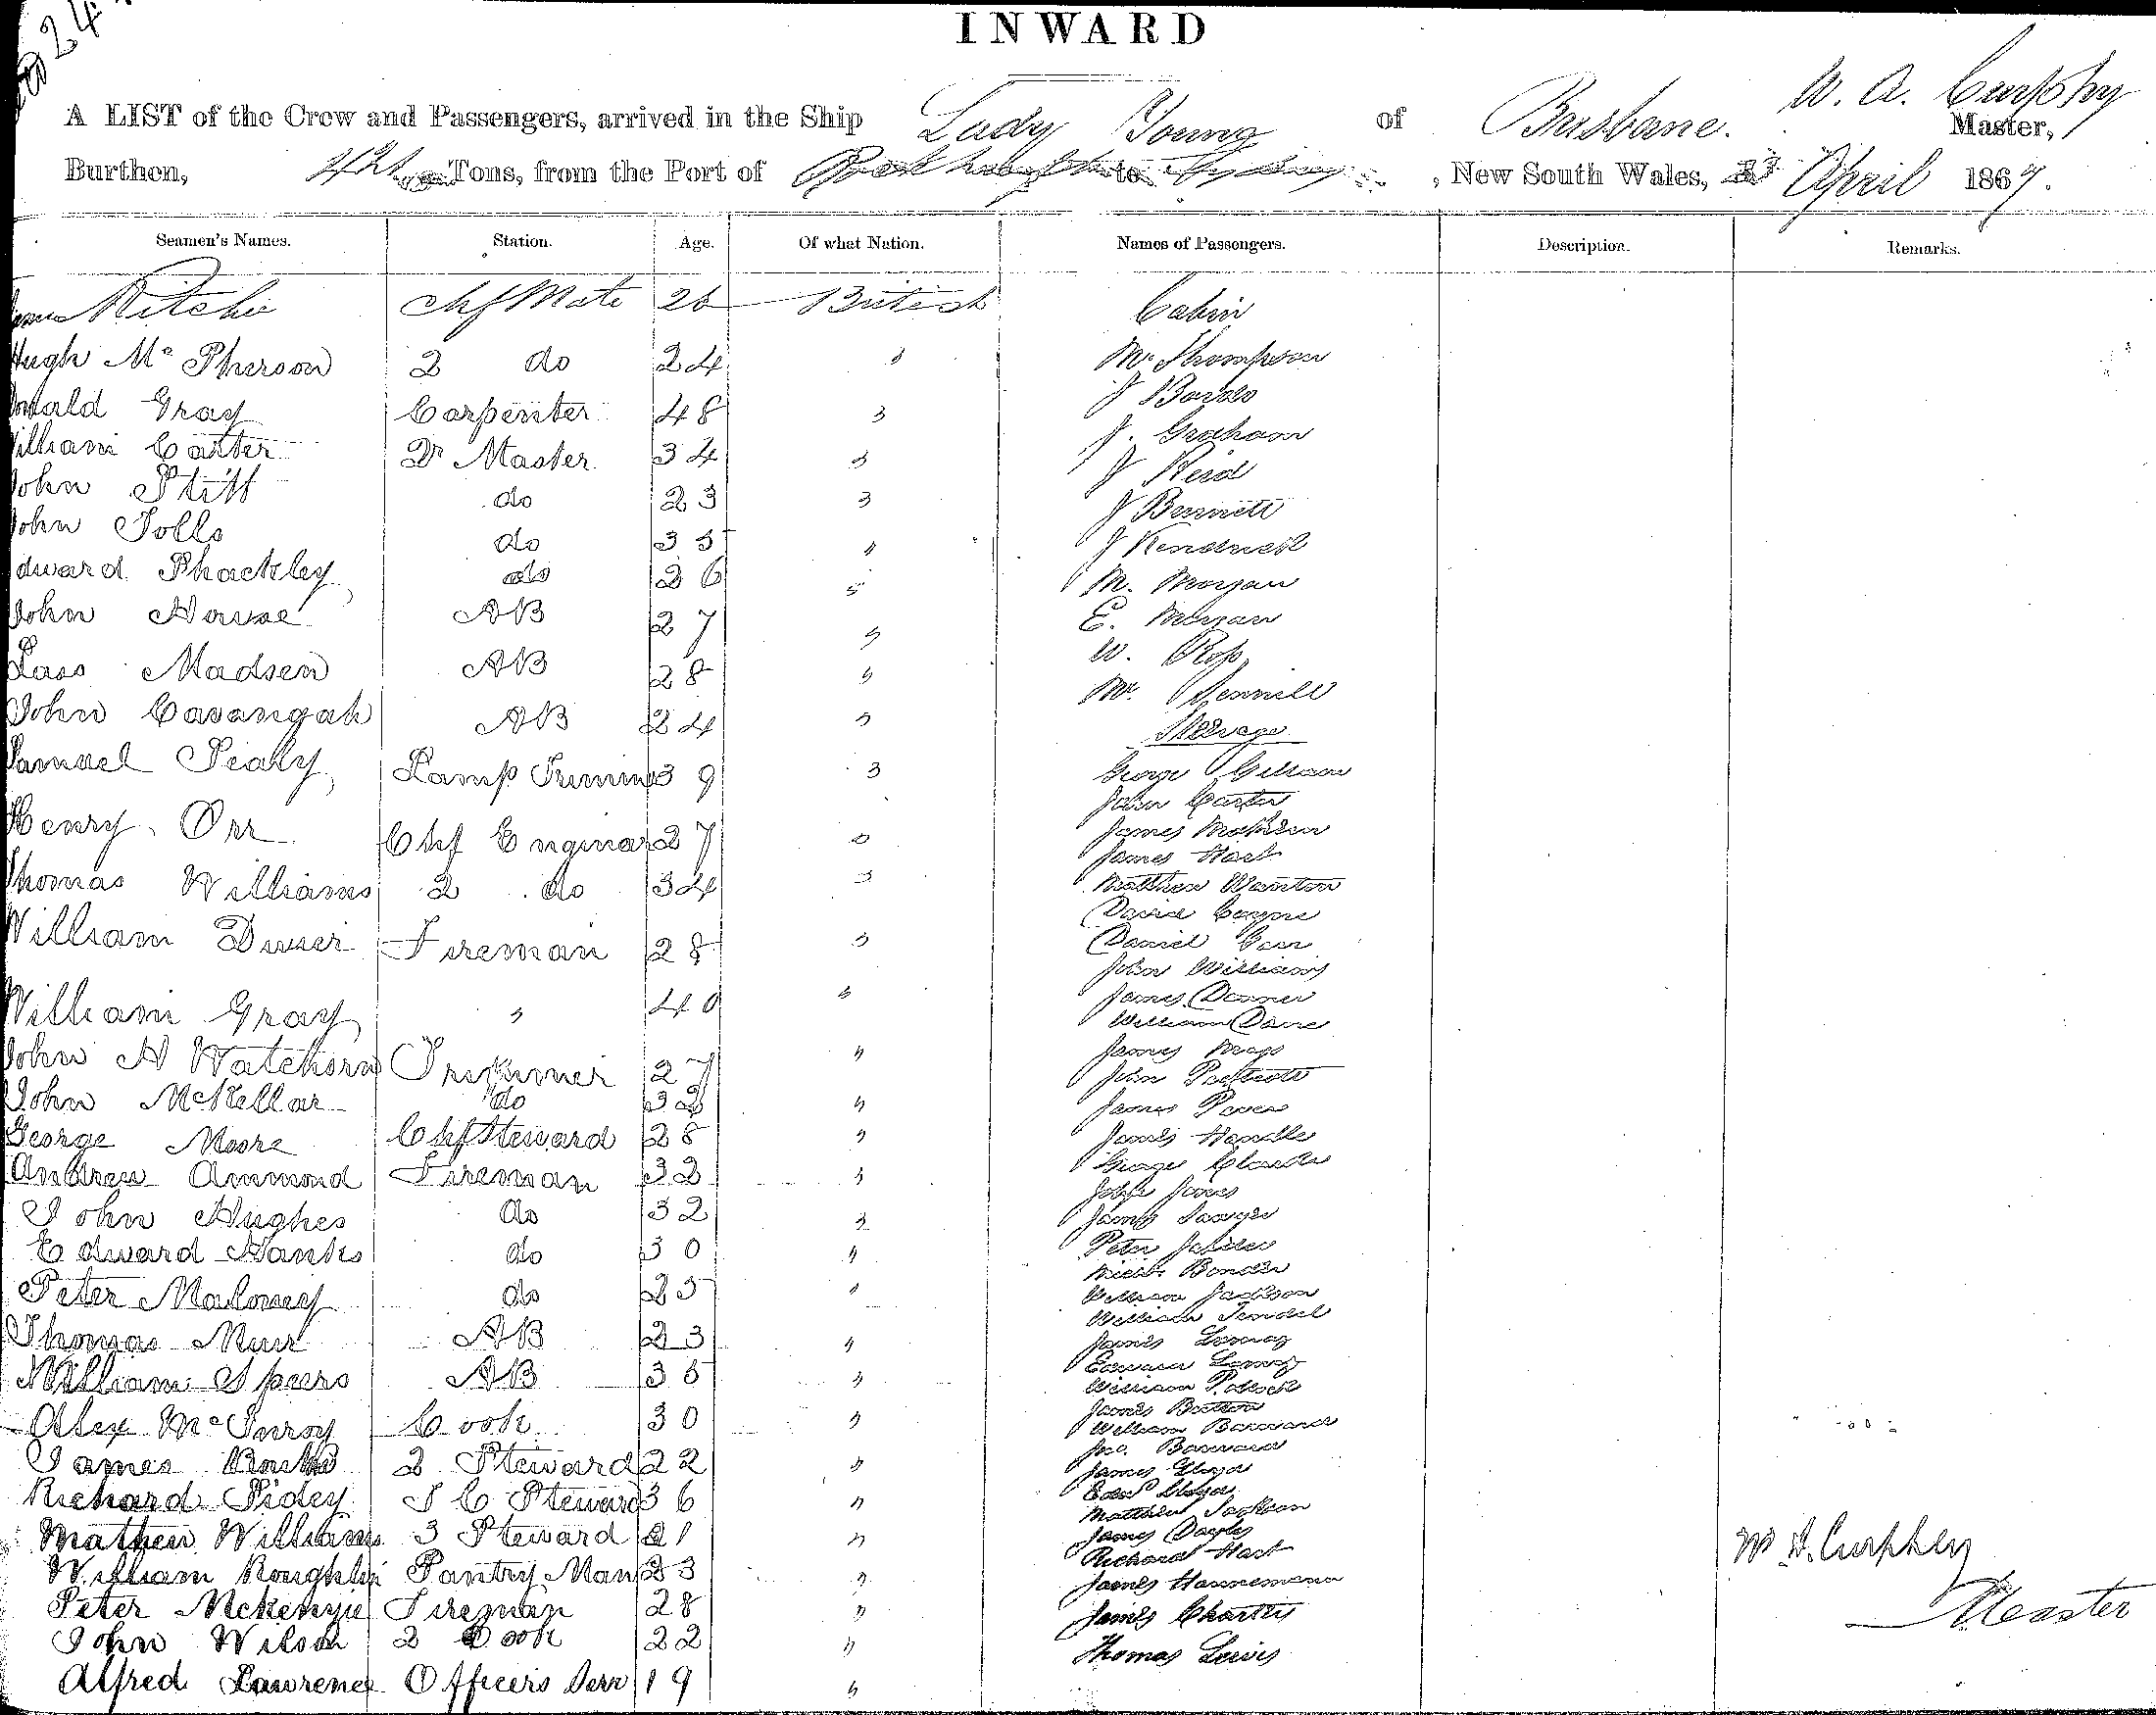 24
INWARD
A LIST of the Crew and Passengers, arrived in the Ship Lady Young of Brisbane. W. A. Curphey Master,
Burthen, 421 Tons, from the Port of to Sydney, New South Wales, April 1869.
Seamen's Names. Station. Age. Of what Nation. Names of Passengers. Description. Remarks.
Ritchie Chf Mate 26 British Cabin
Hugh Mc Pherson 2 do 24 " Mr Thompson
Donald Gray Carpenter 48 " J
William Carter Qr Master 34 " J. Graham
John Stitt do 23 " J Reid
John Tolls do 35 " J Bennett
Edward Shackley do 26 " J Kendrick
John House AB 27 " M. Morgan
Lass Madsen AB 28 " E. Morgan
John Cavangah AB 24 " W. Ross
Samuel Sealy Lamp Trimmer 39 " Mr.
Steerage
Henry Orr Chf Enginar 27 " George Gillam
Thomas Williams 2 do 34 " John Carter
William Dwier Fireman 28 " James
William Gray " 40 " James Hart
John H Watchorn Trimmer 27 " Matthew Wanton
John McKellar do 32 " David Coyne
George Moore Chf Steward 28 " Daniel
Andrew Ammond Fireman 32 " John Williams
John Hughes do 32 " James
Edward Hanks do 30 " William
Peter Maloney do 25 " James
Thomas Muir AB 23 " John
William Spears AB 35 " James
Alex McInroy Cook 30 " James
James 2 Steward 22 " George
Richard Sidey S C Steward 36 " John Jones
Mathew Williams 3 Steward 21 " James Sawyer
William Roughlin Pantry Man 23 " Peter
Peter McKenzie Fireman 28 "
John Wilson 2 Cook 22 " William Jackson
Alfred Lawrence Officers Serv 19 " William Tindal
James Lomas
Edward Lomas
William Pollock
James Britton
William Barnard
Jno. Barnard
James Lloyd
Edwd Lloyd
Matthew Jackson
James Dayly
Richard Hart
James Hannemann
James Charters
Thomas Lewis
W A. Curphey
Master